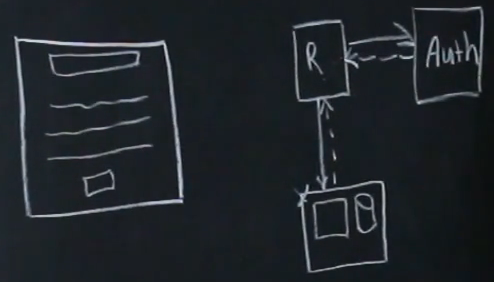 R
Auth